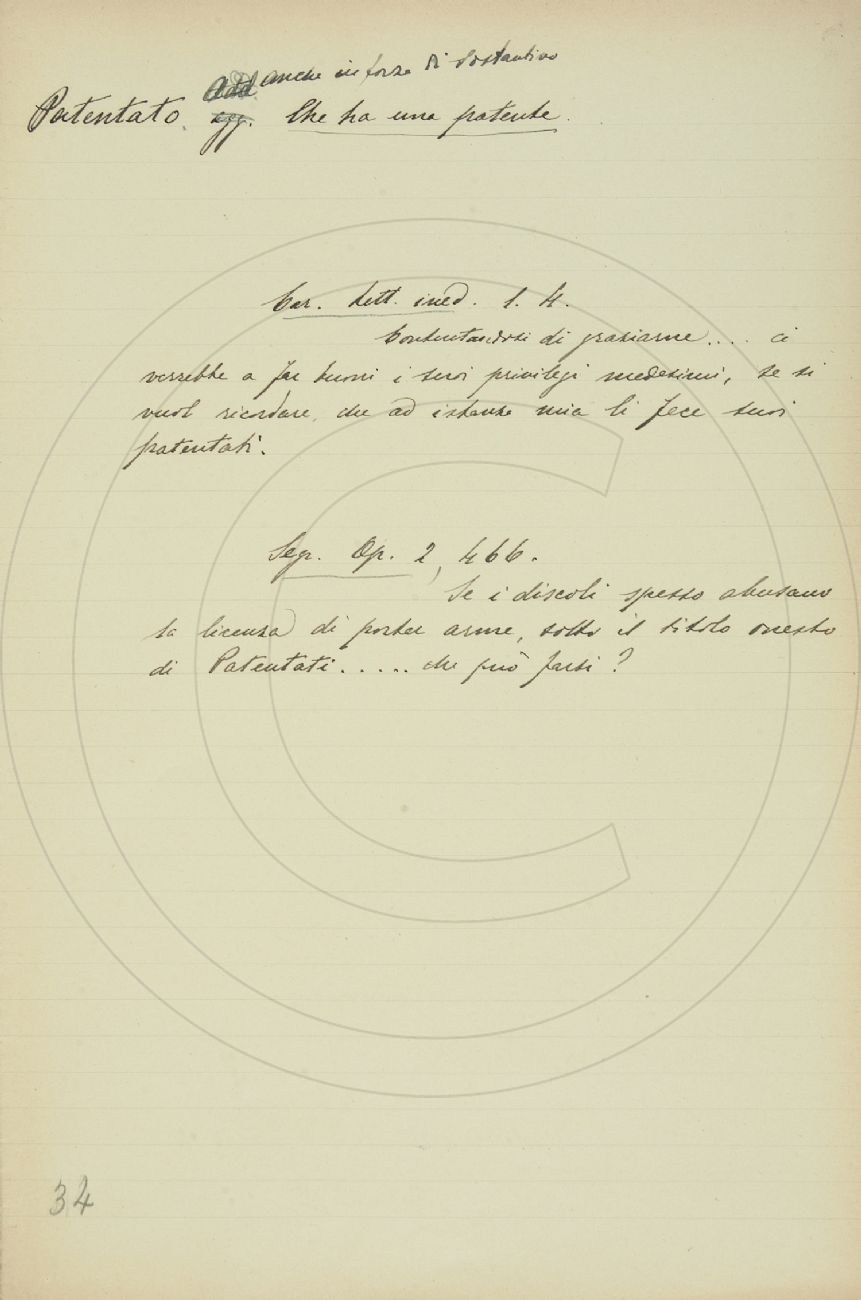 Add anche in forza di sostantivo
Patentato. agg. Che ha una patente.
Car. Lett. ined. 1. 4.
Contentandosi di graziarne.... ci
verrebbe a far buoni i suoi privilegi medesimi, se si
vuol ricordare, che ad istanza mia li fece suoi
patentati.
Segr. Op. 2, 466.
Se i discoli spesso abusano
la licenza di porter arme, sotto il titolo onesto
di Patentati..... che può farsi?
34